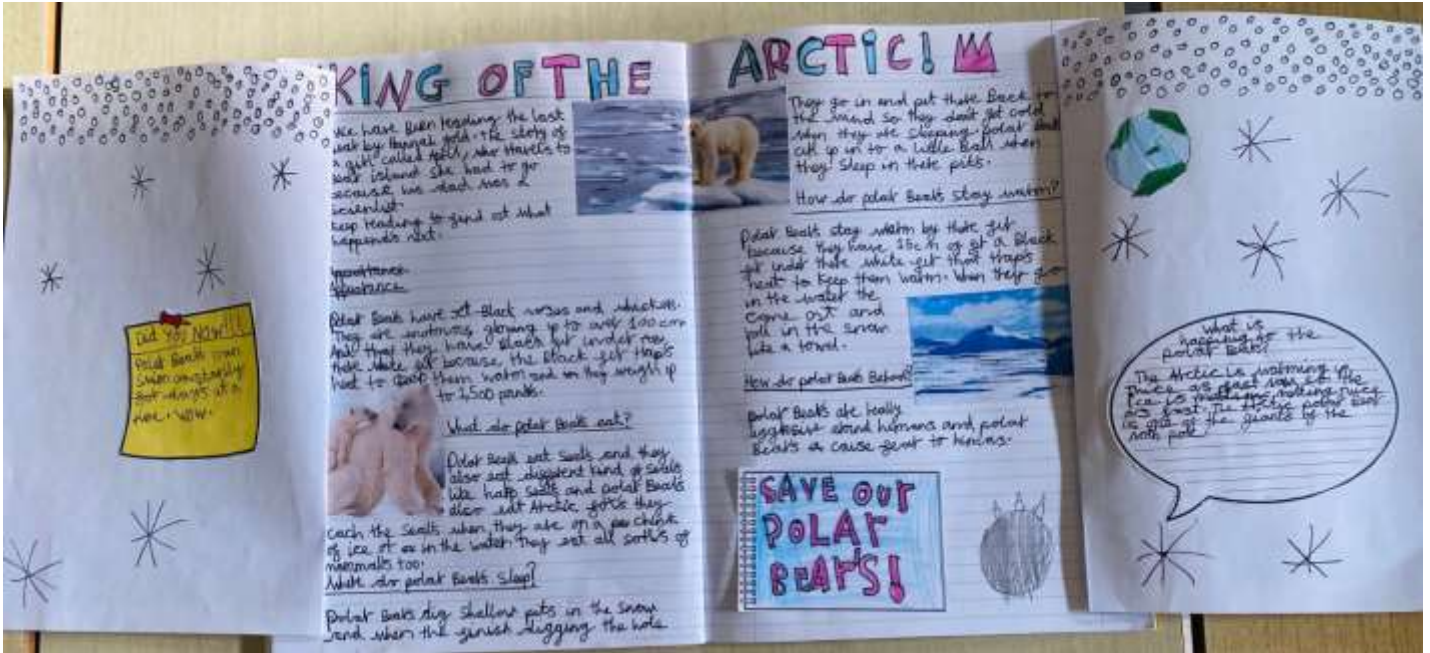 KING OF THE ARCTIC!
We have Been reading the last
bear by Hannah gold. the story of
a girl called April, who travels to
bear island she had to go
because his dad was a
scientist.
keep reading to find ot what
happends next.
Appearance
Polar Bears have jet-Black noses and
They are enormous up to over
And that they have Black under
there white because the Black fur traps
heat to them warm and they weigh up
to 1,500 pands.
What do polar Bears eat?
Polar Bears eat seals and they
also eat diggerent kind of seals
like harp seals and polar Bears
also eat Arctic they
cach the seals when they are on a chunk
of ice or in the water they eat all sorts of
mammals too.
polar Bears Sleep?
Polar Bears dig shallow pits in the snow
and when the finish digging the hole
They go in and put there Back to
the wind so they don't get cold
when they are sleeping. polar
up in to a little Ball when
they Sleep in there pits.
How do polar Bears stay warm?
Polar Bears stay warm by there fur
because they have of a Black
under there white that traps
heat to keep them warm. When they go
in the water the
come out and
roll in the snow
like a towel.
How do polar Bears Behave?
Polar Bears are really
around humans and polar
Bears a cause fear to
SAVE OUr
POLAr
BEArS!
Did You Now!!!
Polar Bears can
Swim constantly
for days at a
time. wow.
What is
happing to the
polar Bears?
The Arctic is warming up
twice as fast now so the
Ice is melting twice
as fast. The Arctic polar Bear
is one of the giants of the
noth pole.